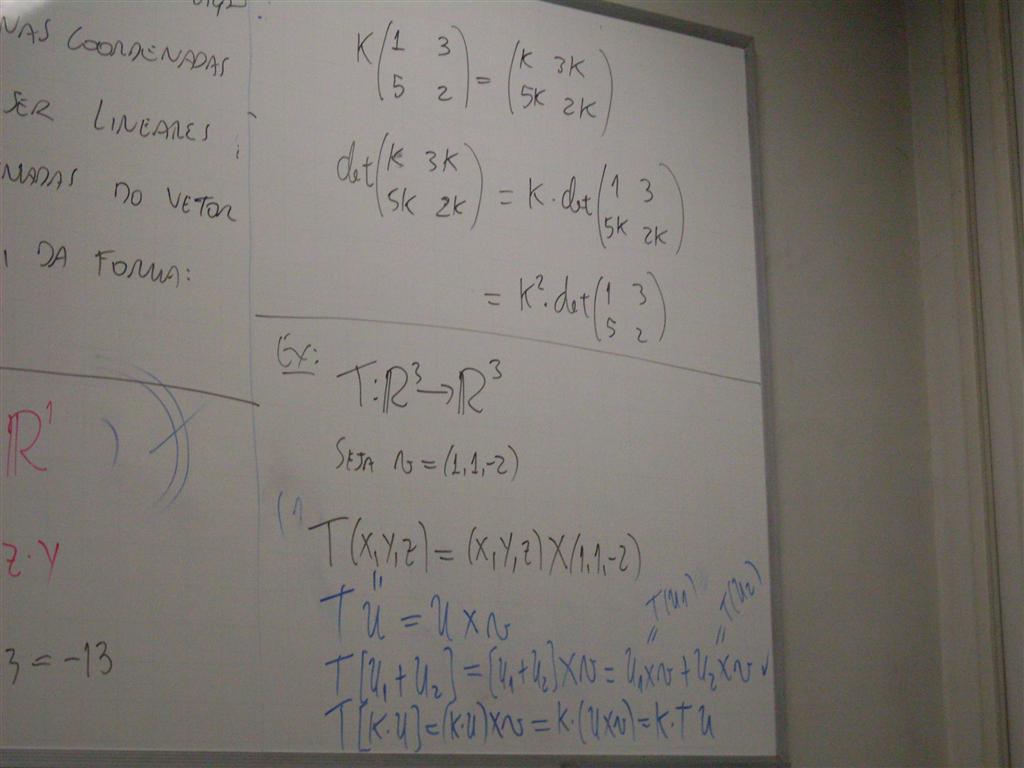 NAS COORDENADAS
SER LINEARES
DO VETOR
DA FORMA:
ℝ¹
z·y
3 = -13
K(1 3; 5 2) = (K 3K; 5K 2K)
det(K 3K; 5K 2K) = K·det(1 3; 5K 2K)
= K²·det(1 3; 5 2)
Ex:
T:ℝ³→ℝ³
SEJA v = (1,1,-2)
T(x,y,z) = (x,y,z) X (1,1,-2)
T u = u × v
T(u₁) T(u₂)
T[u₁+u₂] = [u₁+u₂]×v = u₁×v + u₂×v ✓
T[k·u] = (k·u)×v = k·(u×v) = k·T u